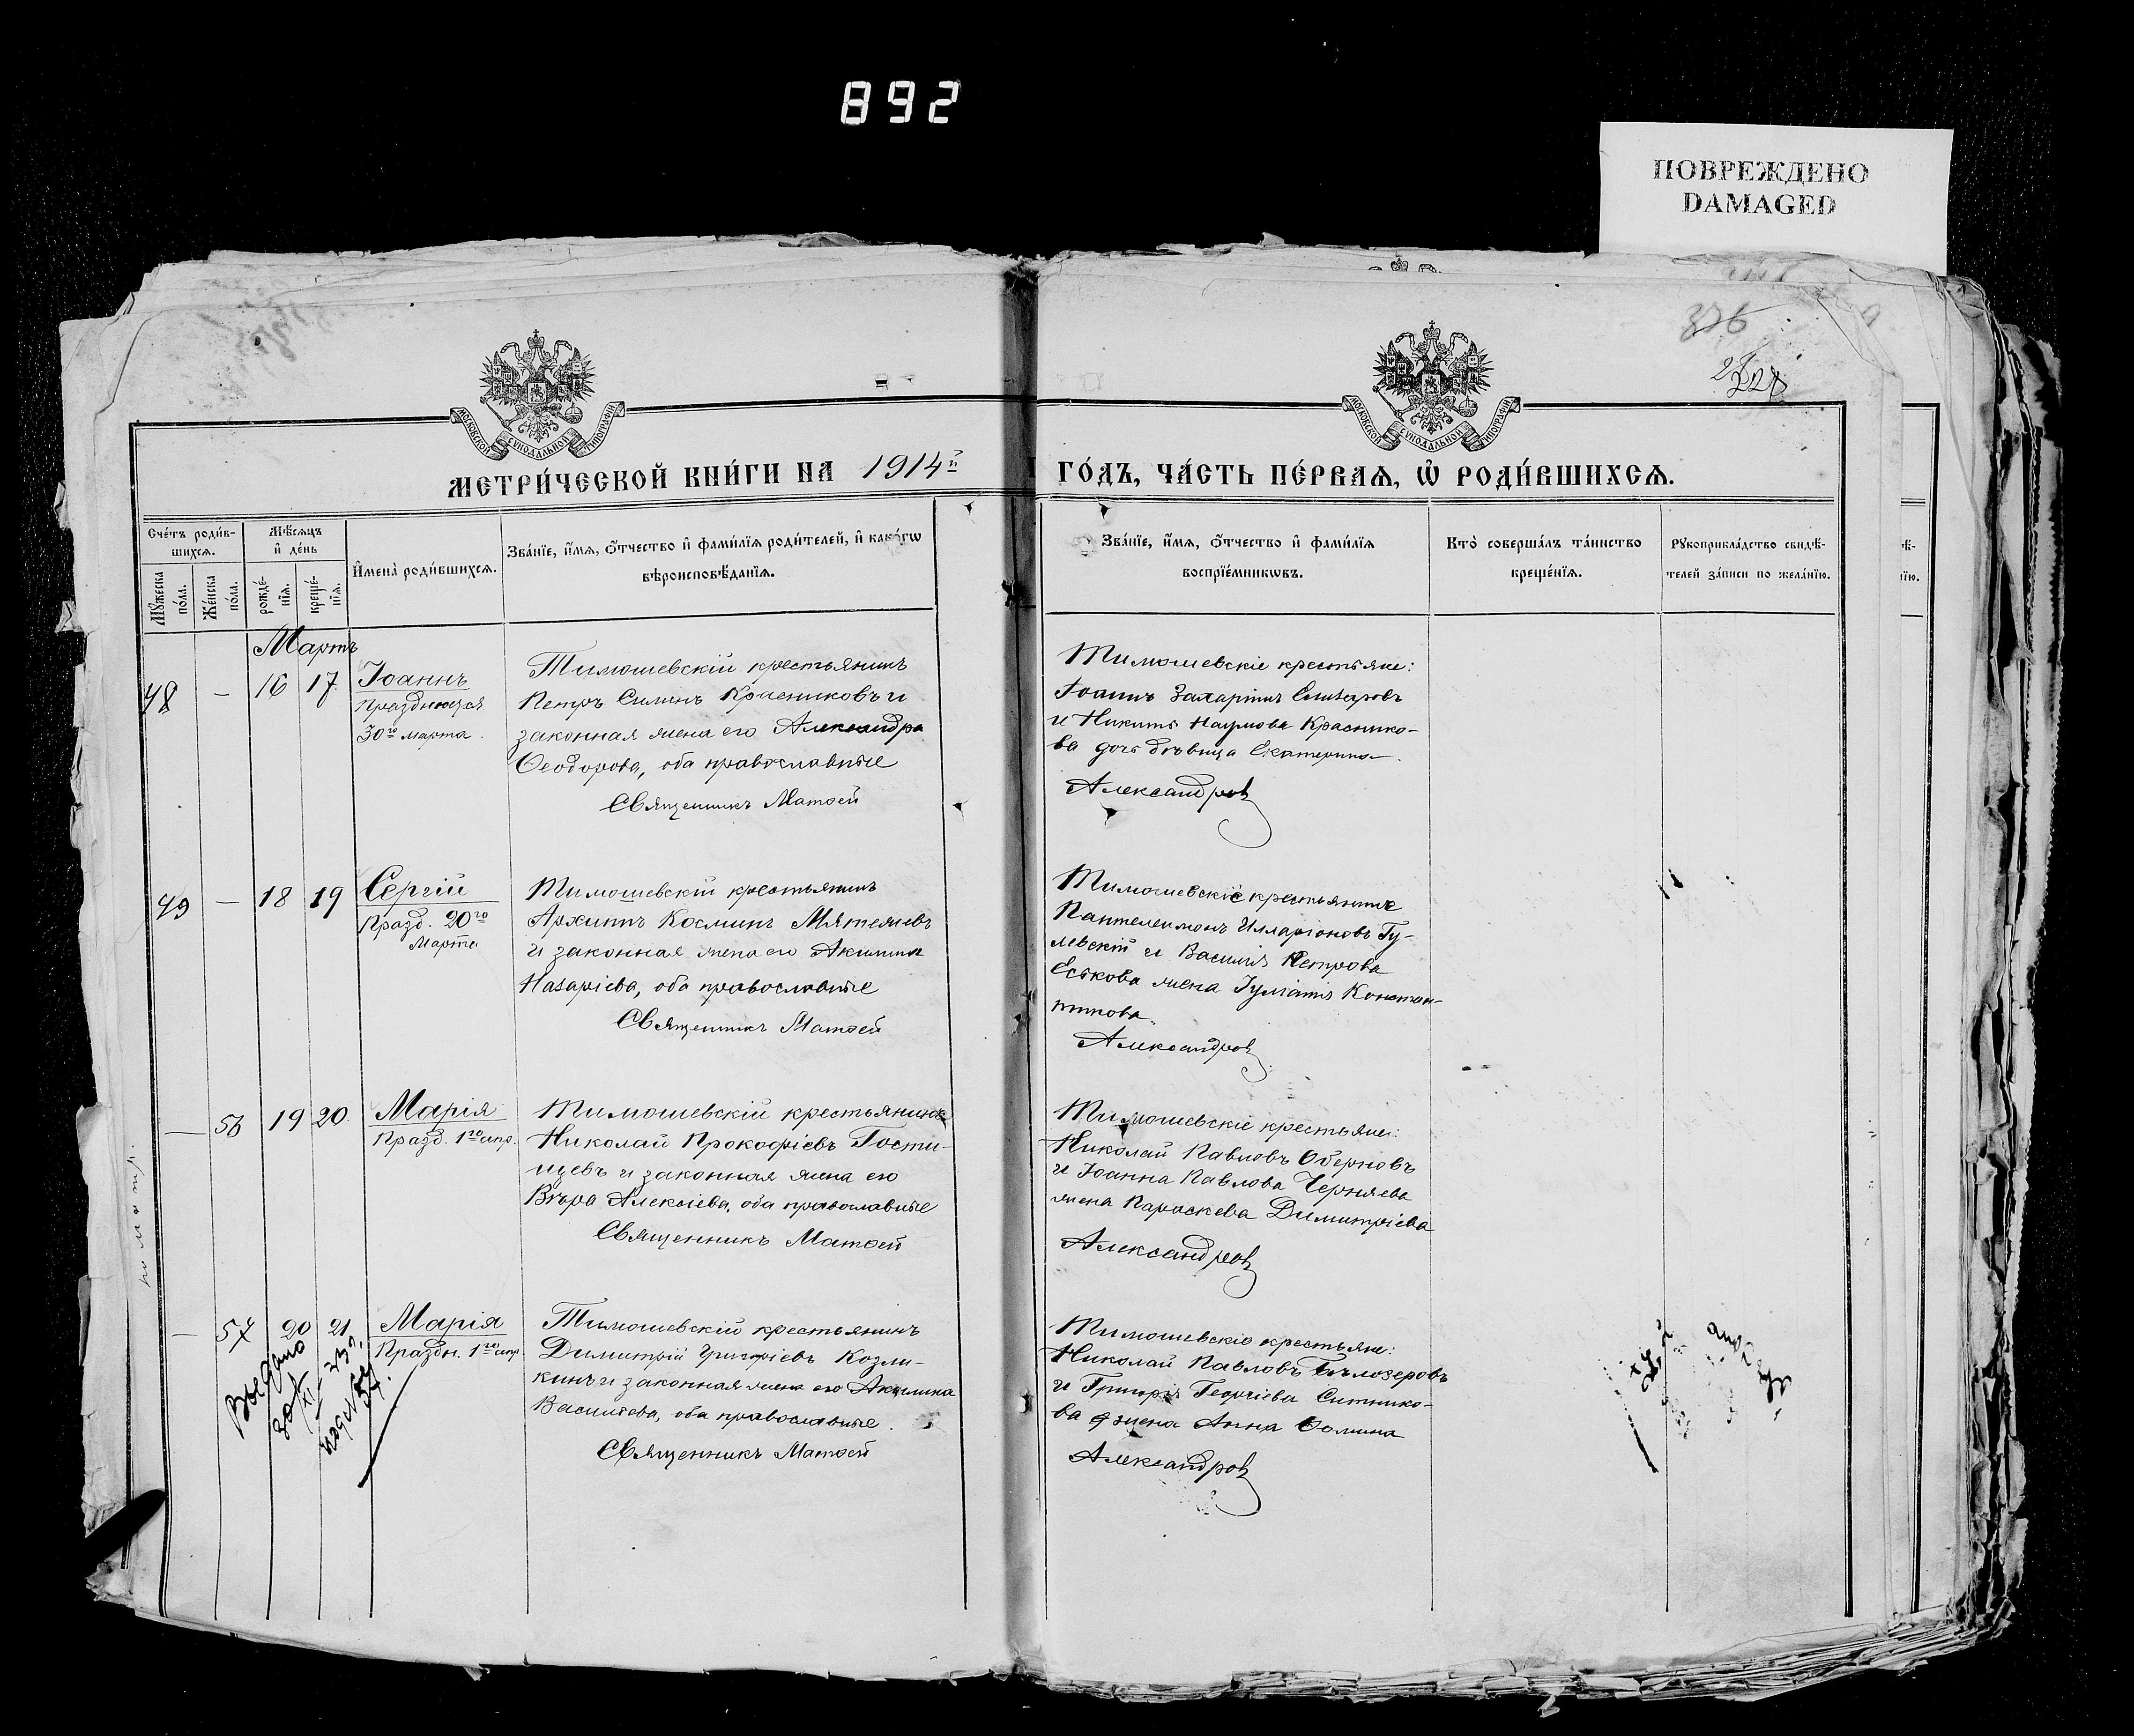 892
ПОВРЕЖДЕНО
DAMAGED
376
228
МОСКОВСКОЙ СѴНОДАЛЬНОЙ ТИПОГРАФІИ
МОСКОВСКОЙ СѴНОДАЛЬНОЙ ТИПОГРАФІИ
МЕТРИ́ЧЕСКОЙ КНИ́ГИ НА 1914й ГО́ДЪ, ЧА́СТЬ ПЕ́РВАѦ, Ѽ РОДИ́ВШИХСѦ.
Сче́тъ роди́в-
шихсѧ.
Мѣ́сѧцъ
и҆ де́нь
Мꙋ́жеска
по́ла.
Же́нска
по́ла.
рожде́-
нїѧ.
креще́-
нїѧ.
И҆мена̀ роди́вшихсѧ.
Зва́нїе, и҆́мѧ, ѻ҆́тчество и҆ фами́лїѧ роди́телей, и҆ како́гѡ
вѣроисповѣ́данїѧ.
Зва́нїе, и҆́мѧ, ѻ҆́тчество и҆ фами́лїѧ
воспрїе́мникѡвъ.
Кто̀ соверша́лъ та́инство
креще́нїѧ.
Рꙋкоприкла́дство свидѣ́-
телей за́писи по жела́нїю.
Мартъ
48 — 16 17
Іоаннъ
Празднуется
30го марта.
Тимошевскій крестьянинъ
Петръ Силинъ Красниковъ и
законная жена его Александра
Ѳеодорова, оба православные
Священникъ Матѳей
Тимошевскіе крестьяне:
Іоаннъ Захаріинъ Елизаровъ
и Никиты Наумова Краснико-
ва дочь дѣвица Екатерина.
Александров
49 — 18 19
Сергій
Празд. 20го
Марта
Тимошевскій крестьянинъ
Архиппъ Косминъ Мятежевъ
и законная жена его Акилина
Назаріева, оба православные
Священникъ Матѳей
Тимошевскіе крестьяне
Пантелеимонъ Илларіоновъ Гу-
левскій и Василія Петрова
Еськова жена Іуліанія Констан-
тинова.
Александров
— 56 19 20
Марія
Празд. 1го апр.
Тимошевскій крестьянинъ
Николай Прокофіевъ Гости-
щевъ и законная жена его
Вѣра Алексіева, оба православные
Священникъ Матѳей
Тимошевскіе крестьяне:
Николай Павловъ Оберновъ
и Іоанна Павлова Черняева
жена Параскева Димитріева
Александров
— 57 20 21
Марія
Праздн. 1го апр
Тимошевскій крестьянинъ
Димитрій Григоріевъ Козли-
кинъ и законная жена его Акилина
Васильева, оба православные.
Священникъ Матѳей
Тимошевскіе крестьяне:
Николай Павловъ Бѣлозеровъ
и Григорія Георгіева Ситнико-
ва жена Анна Ѳомина
Александров
Выдано